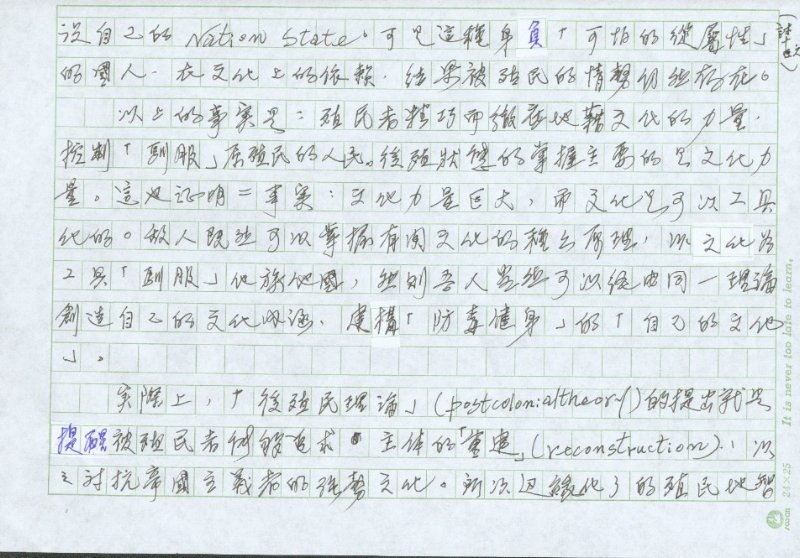 設自己的 Nation State。可見這種身負「可怕的從屬性」
的國人,在文化上的依賴,結果被殖民的情勢仍然存在。
以上的事實是:殖民者精巧而徹底地藉文化的力量,
控制「馴服」原殖民的人民。後殖狀態的掌握主要的是文化力
量。這也証明二事實:文化力量巨大,而文化是可以工具
化的。敵人既然可以掌握有關文化的種々原理,以文化為
工具「馴服」他族他國,然則吾人當然可以經由同一理論
創造自己的文化內涵,建構「防毒健身」的「自己的文化
」。
實際上,「後殖民理論」(postcolonialtheory)的提出就是
提醒被殖民者何務追求主体的「重建」(reconstruction),以
之對抗帝國主義者的強勢文化。所以邊緣化了的殖民地智
It is never too late to learn.
24×25